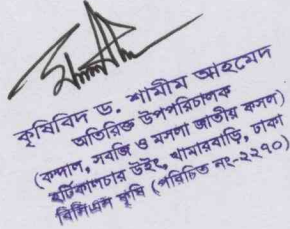 কৃষিবিদ ড. শামীম আহমেদ
অতিরিক্ত উপপরিচালক
(কন্দাল, সবজি ও মসলা জাতীয় ফসল)
হর্টিকালচার উইং, খামারবাড়ি, ঢাকা
বিসিএস কৃষি (পরিচিত নং-২২৭০)